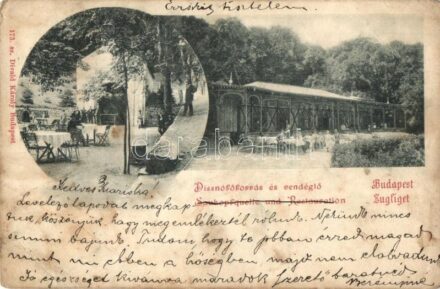 Évődig tisztelem
173. sz. Divald Károly Budapest.
darabanth
Disznófőforrás és vendéglő
Saukopfquelle und Restauration
Budapest
Zugliget
Kedves Mariská!
Levelező lapodat megkap
tuk köszönjük hogy megemlékeztél rólunk. Nekünk nincs
semmi bajunk. Tudom hogy te jobban érzed magad
mint mi ebben a hőségben majd nem elolvadunk
Jó egészséget kívánva maradok szerető barátnéd